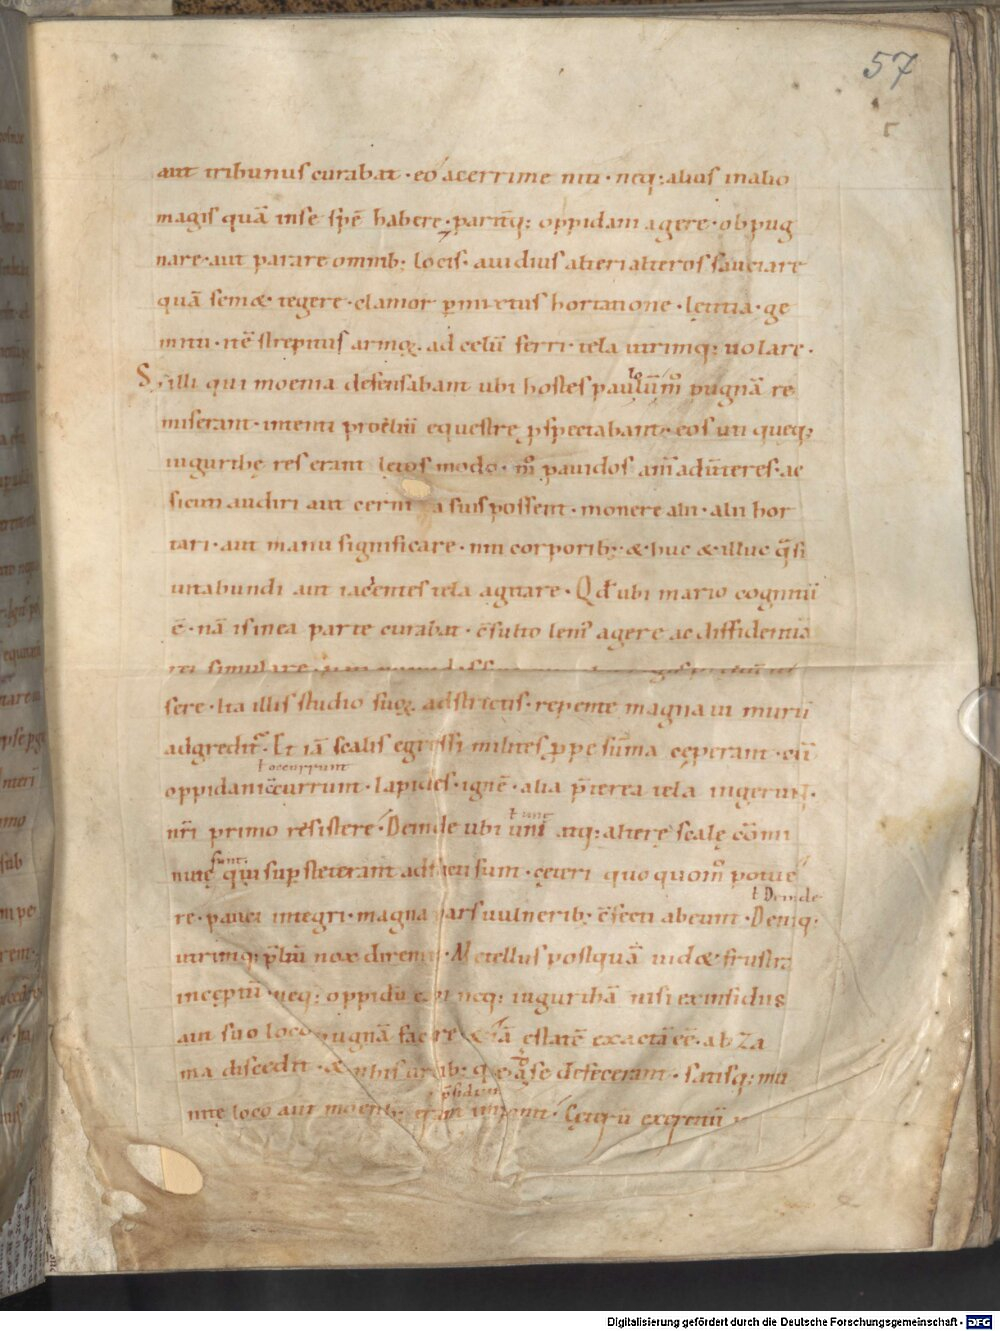 57
aut tribunus curabat · eo acerrime niti · neq; alius inalio
magis quā inse spē habere · pariťq; oppidani agere · obpug
nare · aut parare omnib; locis · auidius alteri alteros sauciare
quā sem& tegere · clamor p̄mixtus hortatione · lętitia · ge
mitu · itē strepitus armoꝝ · ad celū ferri · tela utrimq; uolare ·
S; illi qui moenia defensabant ubi hostes paulūm̊ pugnā re
miserant · intenti proeliū equestre pspectabant · eos uti queq;
iugurthę res erant lętos modo · m̊ pauidos
sicuti audiri aut cerni a suis possent · monere alii · alii hor
tari · aut manu significare · niti corporib; & huc & illuc q̄si
uitabundi aut iacientes tela agitare · Qđ ubi mario cognitū
ē · nā is in ea parte curabat · c̄sulto leni agere ac diffidentiā
rei simulare
sere · Ita illis studio suoꝝ adstrictis · repente magna ui murū
adgredit · Et iā scalis egressi milites ppe sūma cęperant · cū
ł occurrunt
oppidani c̄currunt · lapides · ignē · alia p̄terea tela ingerunt ·
nr̄i primo resistere · Deinde ubi unę atq; alterę scalę cōmi
sunt ·
nutę qui supsteterant adflicti sunt · cęteri quoquom̊ potue
ł Deinde
re · pauci integri · magna pars uulnerib; c̄fecti abeunt · Deniq ·
utrimq; p̄liū nox diremit · Metellus postquā uid& frustra
inceptū · neq; oppidū capi neq; iugurthā nisi ex insidiis
aut suo loco pugnā facere & iā estatē exactā eē · ab Za
ma discedit · & in his urbib; quę ad se defecerant · satisq; mu
p̄sidia
nitę loco aut moenib; erant inponit · Cęterū exercitū
Digitalisierung gefördert durch die Deutsche Forschungsgemeinschaft - DFG